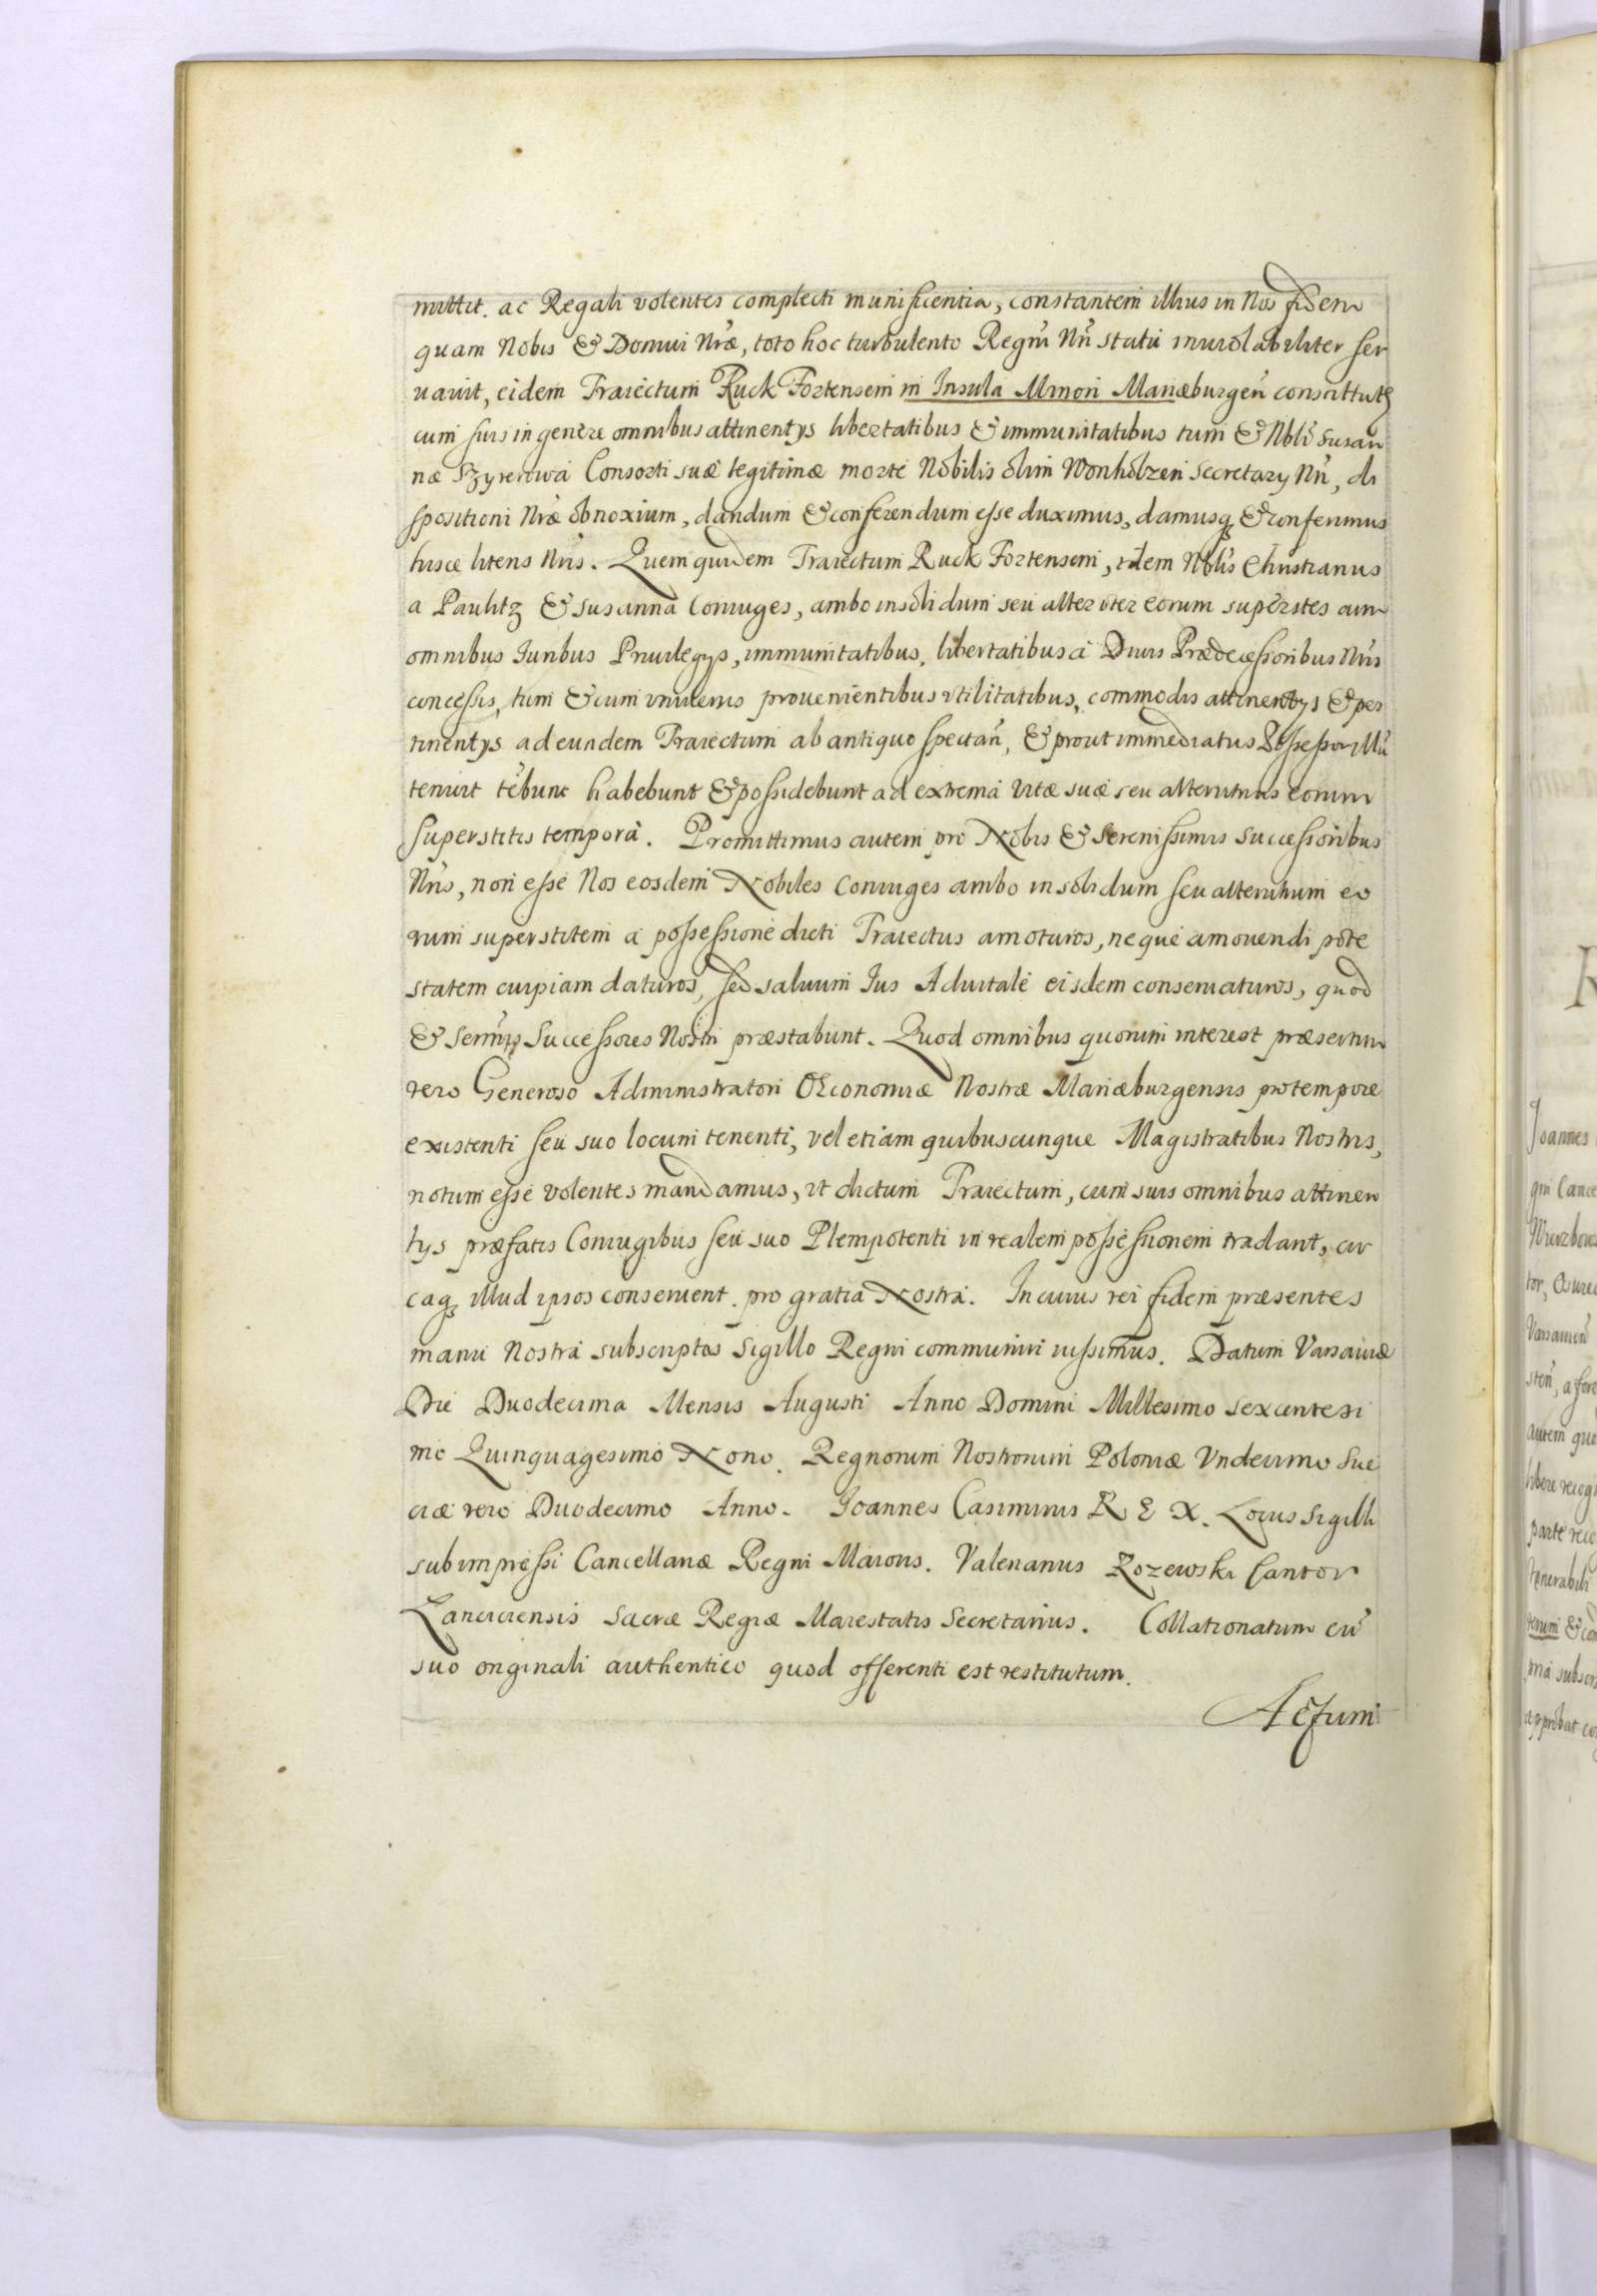 mittit. ac Regali volentes complecti munificentia, constantem illius in Nos fidem
quam Nobis & Domui Nræ, toto hoc turbulento Regni Nri statu inuiolabiliter ser
uauit, eidem Traiectum Ruck Fortensem in Insula Minori Mariæburgen consittutũ
cum suis in genere omnibus attinentys libertatibus & immunitatibus tum & Nbli Susan
næ Szyrerowa Consorti suæ legitimæ morte Nobilis olim Wonholzen Secretary Nri, di
spositioni Nræ obnoxium, dandum & conferendum esse duximus, damusq & conferimus
hisce literis Nris. Quem quidem Traiectum Ruck Fortensem, idem Nblis Christianus
a Paulitz & Susanna Coniuges, ambo insolidum seu alteruter eorum superstes cum
omnibus Iuribus Priuilegys, immunitatibus, libertatibus à Diuis Prædecessoribus Nris
concessis, tum & cum vniuersis prouenientibus vtilitatibus, commodis attinentys & per
tinentys ad eundem Traiectum ab antiquo spectan, & prout immediatus Possessor illũ
tenuit tẽbunt habebunt & possidebunt ad extrema vitæ suæ seu alterutrius eorum
superstitis tempora. Promittimus autem pro Nobis & Serenissimis Successoribus
Nris, non esse Nos eosdem Nobiles Coniuges ambo insolidum seu alterutrum eo
rum superstitem à possessione dicti Traiectus amoturos, neque amouendi pote
statem cuipiam daturos, sed saluum Ius Aduitale eisdem conseruaturos, quod
& Sermi Successores Nostri præstabunt. Quod omnibus quorum interest præsertim
vero Generoso Administratori OEconomiæ Nostræ Mariæburgensis pro tempore
existenti seu suo locum tenenti, vel etiam quibuscunque Magistratibus Nostris,
notum esse volentes mandamus, vt dictum Traiectum, cum suis omnibus attinen
tys præfatis Coniugibus seu suo Plenipotenti in realem possessionem tradant, cir
caq illud ipsos conseruent. pro gratia Nostra. In cuius rei fidem præsentes
manu Nostra subscriptas Sigillo Regni communiri iussimus. Datum Varsauiæ
Die Duodecima Mensis Augusti Anno Domini Millesimo Sexcentesi
mo Quinquagesimo Nono. Regnorum Nostrorum Poloniæ Vndecimo Sue
ciæ vero Duodecimo Anno. Ioannes Casimirus REX. Locus Sigilli
subimpressi Cancellariæ Regni Maioris. Valerianus Rozewski Cantor
Lanciciensis Sacræ Regiæ Maiestatis Secretarius. Collationatum cũ
suo originali authentico quod offerenti est restitutum.
Actum